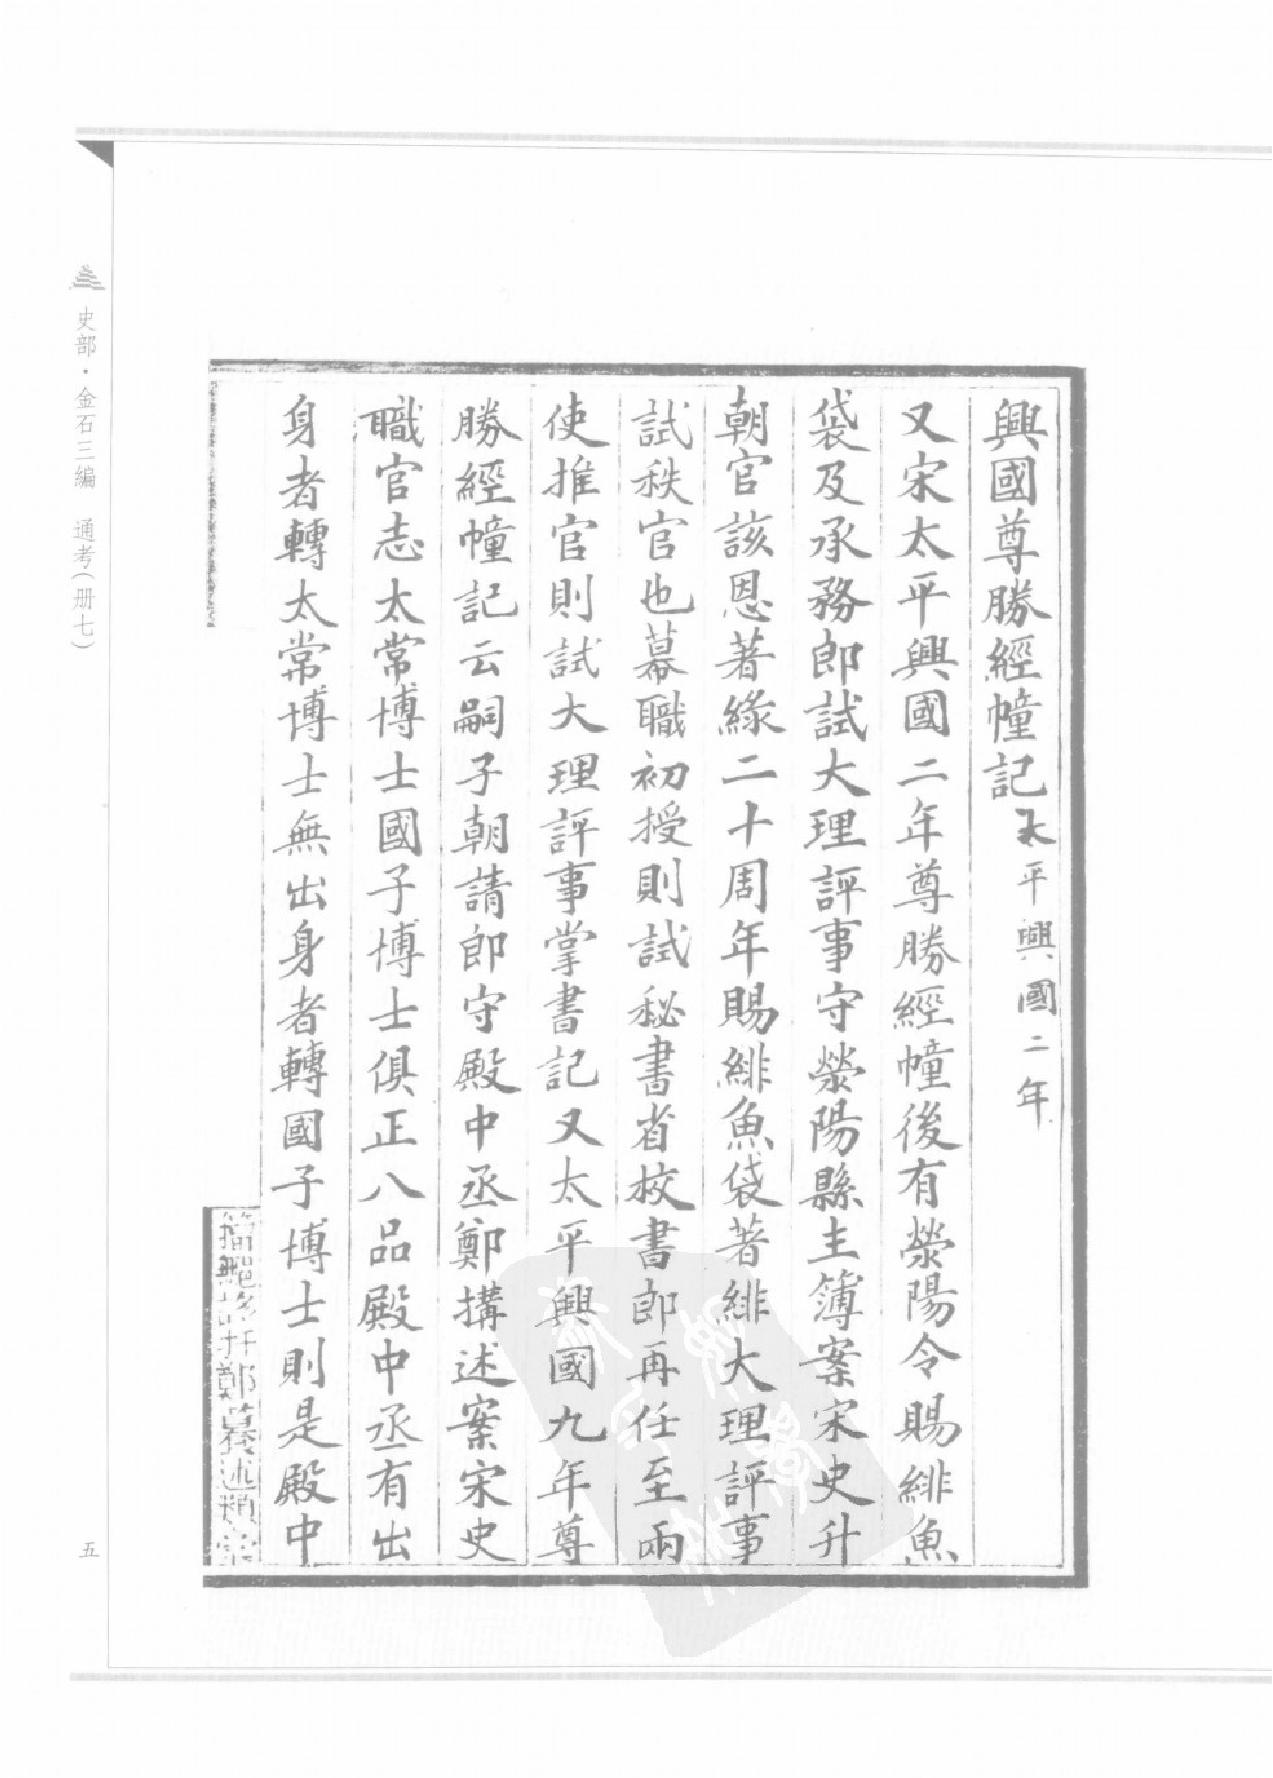 興國尊勝經幢記太平興國二年
又宋太平興國二年尊勝經幢後有滎陽令賜緋魚
袋及承務郎試大理評事守滎陽縣主簿案宋史升
朝官該恩著綠二十周年賜緋魚袋著緋大理評事
試秩官也幕職初授則試秘書省校書郎再任至兩
使推官則試大理評事掌書記又太平興國九年尊
勝經幢記云嗣子朝請郎守殿中丞鄭搆述案宋史
職官志太常博士國子博士俱正八品殿中丞有出
身者轉太常博士無出身者轉國子博士則是殿中
史部·金石三編 通考(册七)
五